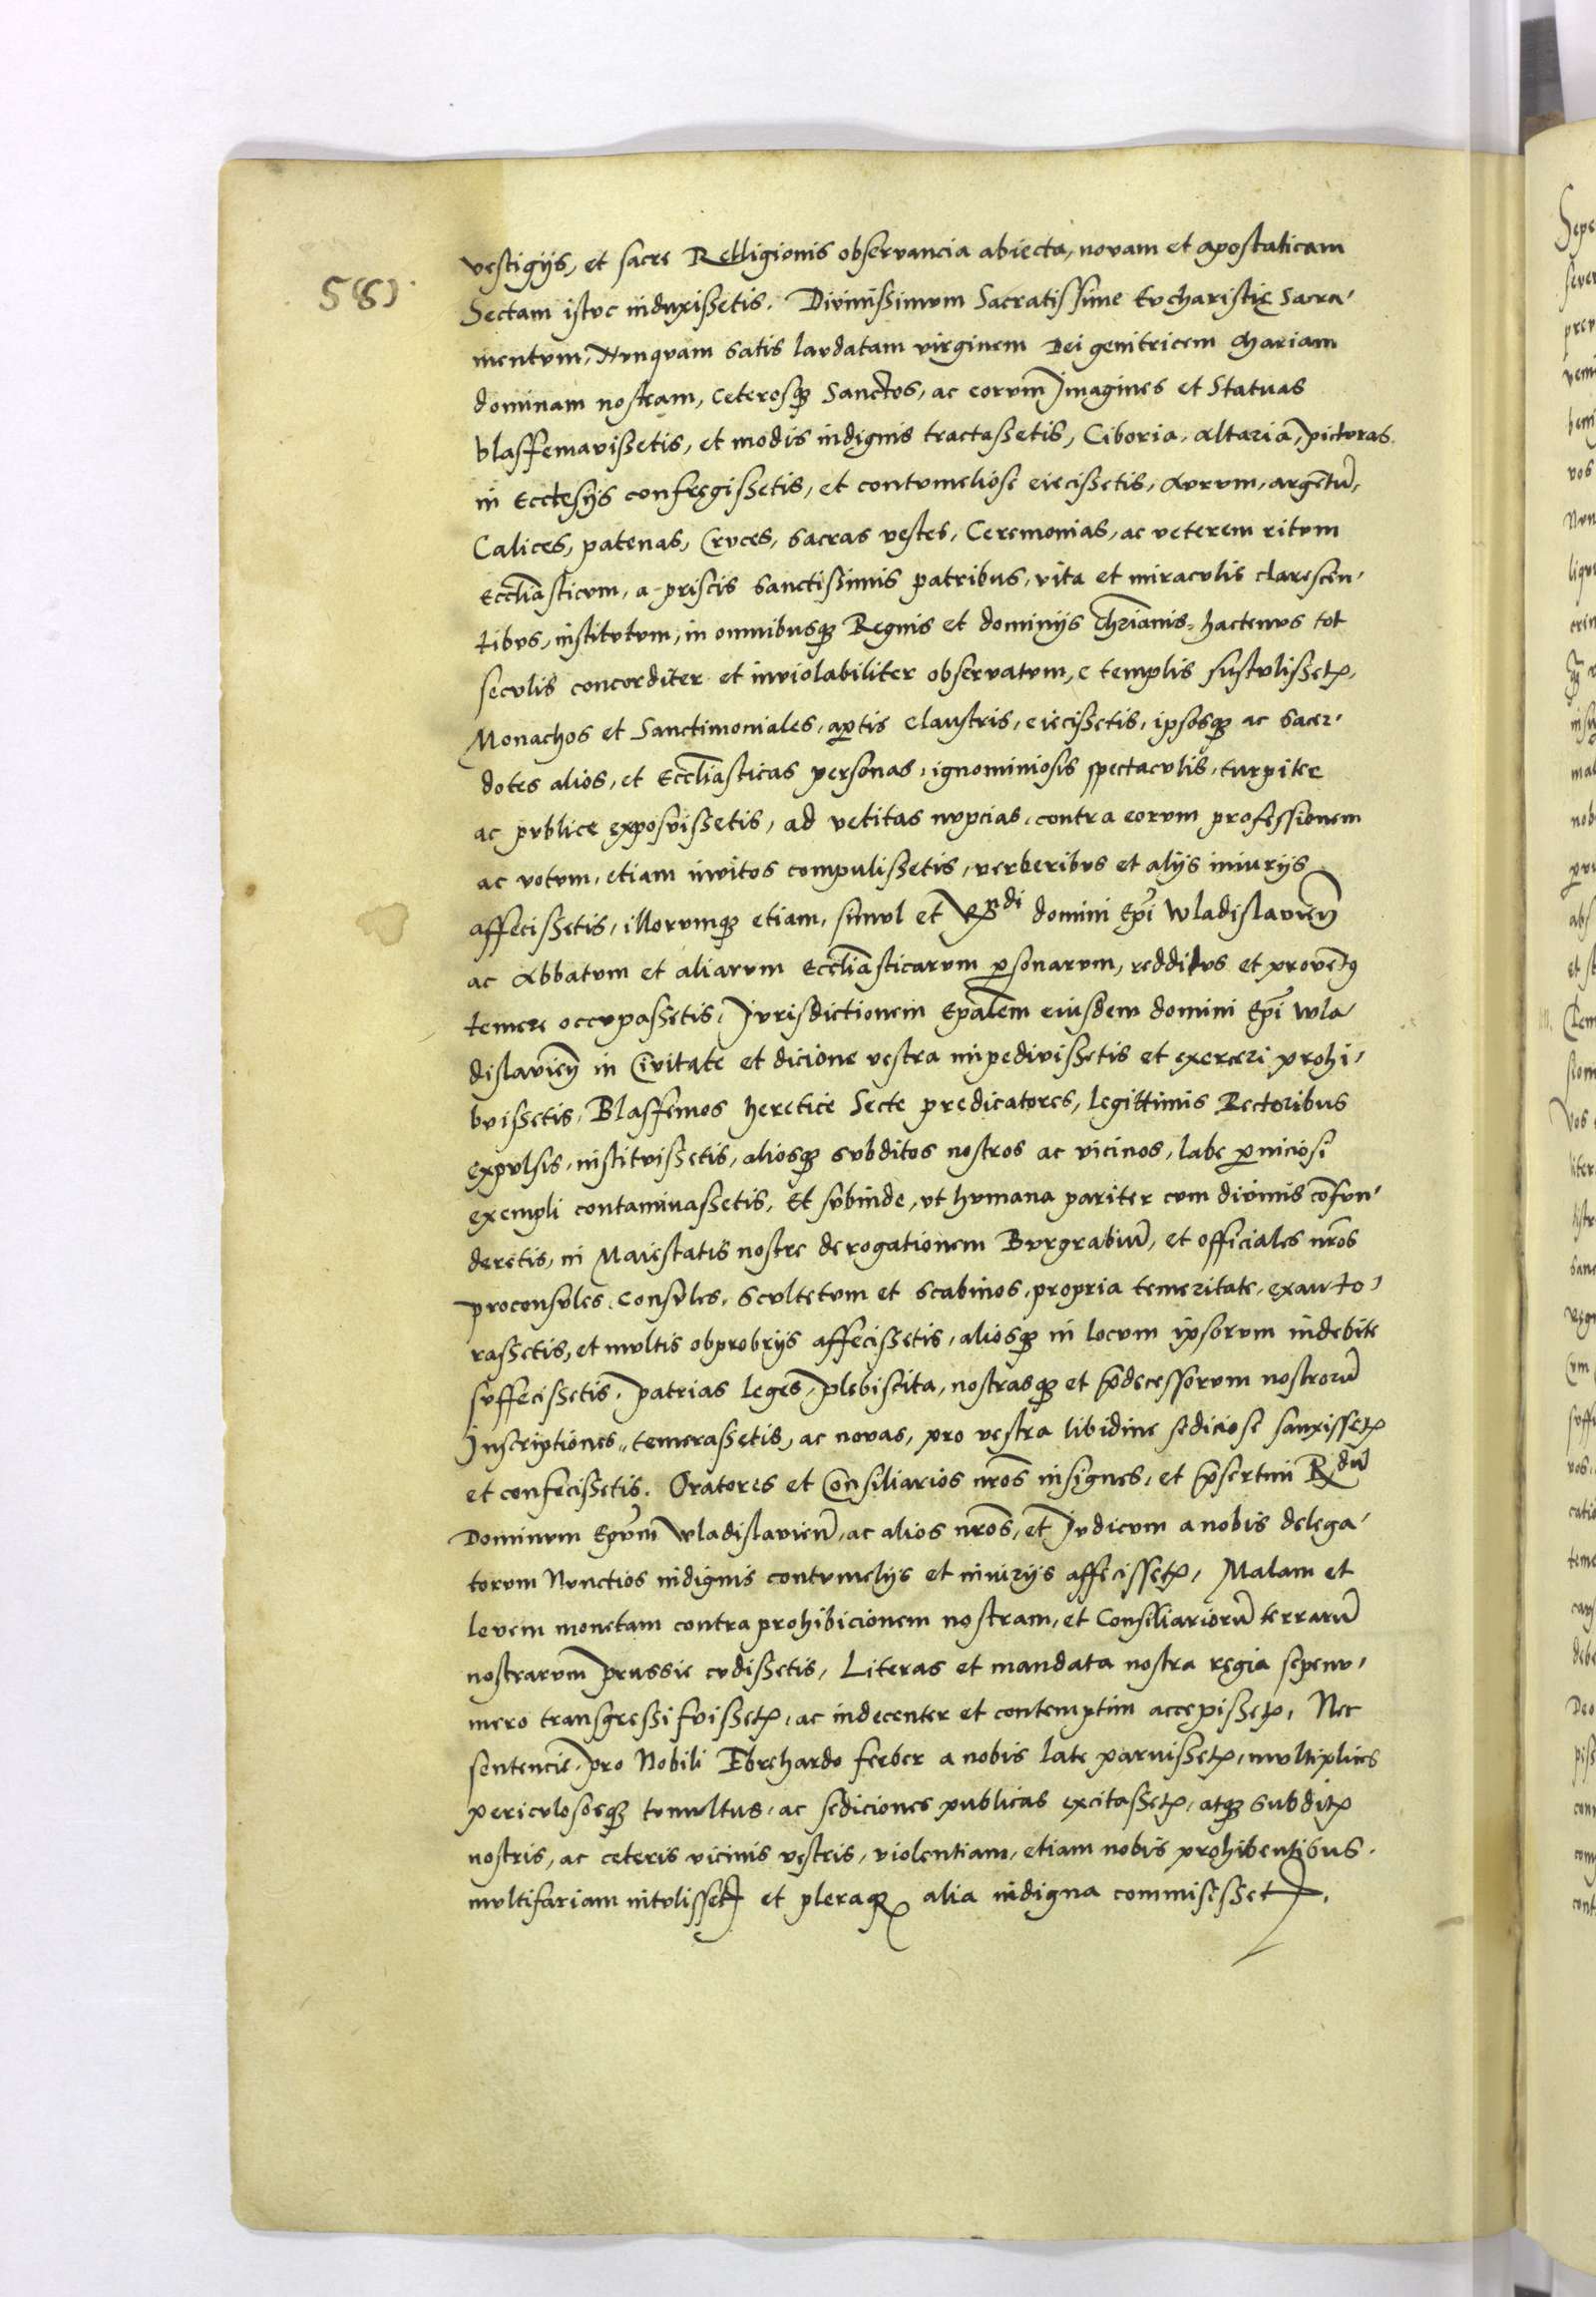 58)
vestigijs, et sacre Relligionis observancia abiecta, novam et apostaticam
Sectam istvc indvxissetis. Divinissimvm Sacratissime Evcharistie Sacra-
mentvm, Nvnqvam satis lavdatam virginem Dei genitricem Mariam
dominam nostram, Ceterosq3 Sanctos, ac eorvm Imagines et Statvas
blasfemavissetis, et modis indignis tractassetis, Ciboria, altaria, pictvras
in Ecclesijs confręgissetis, et contvmeliose eiecissetis, Avrvm, argētū,
Calices, patenas, Crvces, sacras vestes, Ceremonias, ac veterem ritvm
Eccłiasticvm, a priscis sanctissimis patribus, vita et miracvlis clarescen-
tibvs, institvtvm, in omnibusq3 Regnis et dominijs Chrīanis, hactenvs tot
secvlis concorditer et inviolabiliter observatvm, e templis svstvlissetꝭ,
Monachos et Sanctimoniales, aꝑtis claustris, eiecissetis, ipsosq3 ac sacer-
dotes alios, et Eccłiasticas personas, ignominiosis spectacvlis, turpiter
ac pvblice exposvissetis, ad vetitas nvpcias, contra eorvm professionem
ac votvm, etiam invitos compulissetis, verberibvs et alijs iniurijs
affecissetis, illorvmq3 etiam, simvl et Rndi domini Ep̄i Wladislavień
ac Abbatvm et aliarvm Eccłiasticarvm ꝑsonarvm, redditvs et provētꝰ
temere occvpassetis, Jvrisdictionem Ep̄alem eiusdem domini Ep̄i Wla-
dislavień in Civitate et dicione vestra impedivissetis et exerceri prohi-
bvissetis, Blasfemos heretice Secte predicatores, legittimis Rectoribus
expvlsis, institvissetis, aliosq3 svbditos nostros ac vicinos, labe ꝑniciosi
exempli contaminassetis, Et svbinde, vt hvmana pariter cvm divinis cōfvn-
deretis, in Maiestatis nostre derogationem Bvrgrabiū, et officiales nr̄os
proconsvles, Consvles, Scvltetvm et Scabinos, propria temeritate, exavto-
rassetis, et mvltis obprobrijs affecissetis, aliosq3 in locvm ipsorvm indebite
svffecissetis, patrias leges, plebiscita, nostrasq3 et p̄decessorvm nostrorū
Inscriptiones, temerassetis, ac novas, pro vestra libidine sediciose sanxissetꝭ
et confecissetis. Oratores et Consiliarios nr̄os insignes, et p̄sertim Rdū
Dominvm Ep̄vm Wladislavień, ac alios nr̄os, et Jvdicvm a nobis delega-
torvm Nvnctios indignis contvmelijs et iniurijs affecissetꝭ, Malam et
levem monetam contra prohibicionem nostram, et Consiliariorū terrarū
nostrarvm prussie cvdissetis, Literas et mandata nostra regia sepenv-
mero transgressi fvissetꝭ, ac indecenter et contemptim accepissetꝭ, Nec
sentencie, pro Nobili Ebrehardo ferber a nobis late parvissetꝭ, mvltiplices
pericvlososq3 tvmultus, ac sediciones publicas excitassetꝭ, atq3 subditꝭ
nostris, ac ceteris vicinis vestris, violentiam, etiam nobis prohibentibus,
mvltifariam intvlissetꝭ et pleraq3 alia indigna commisissetꝭ,